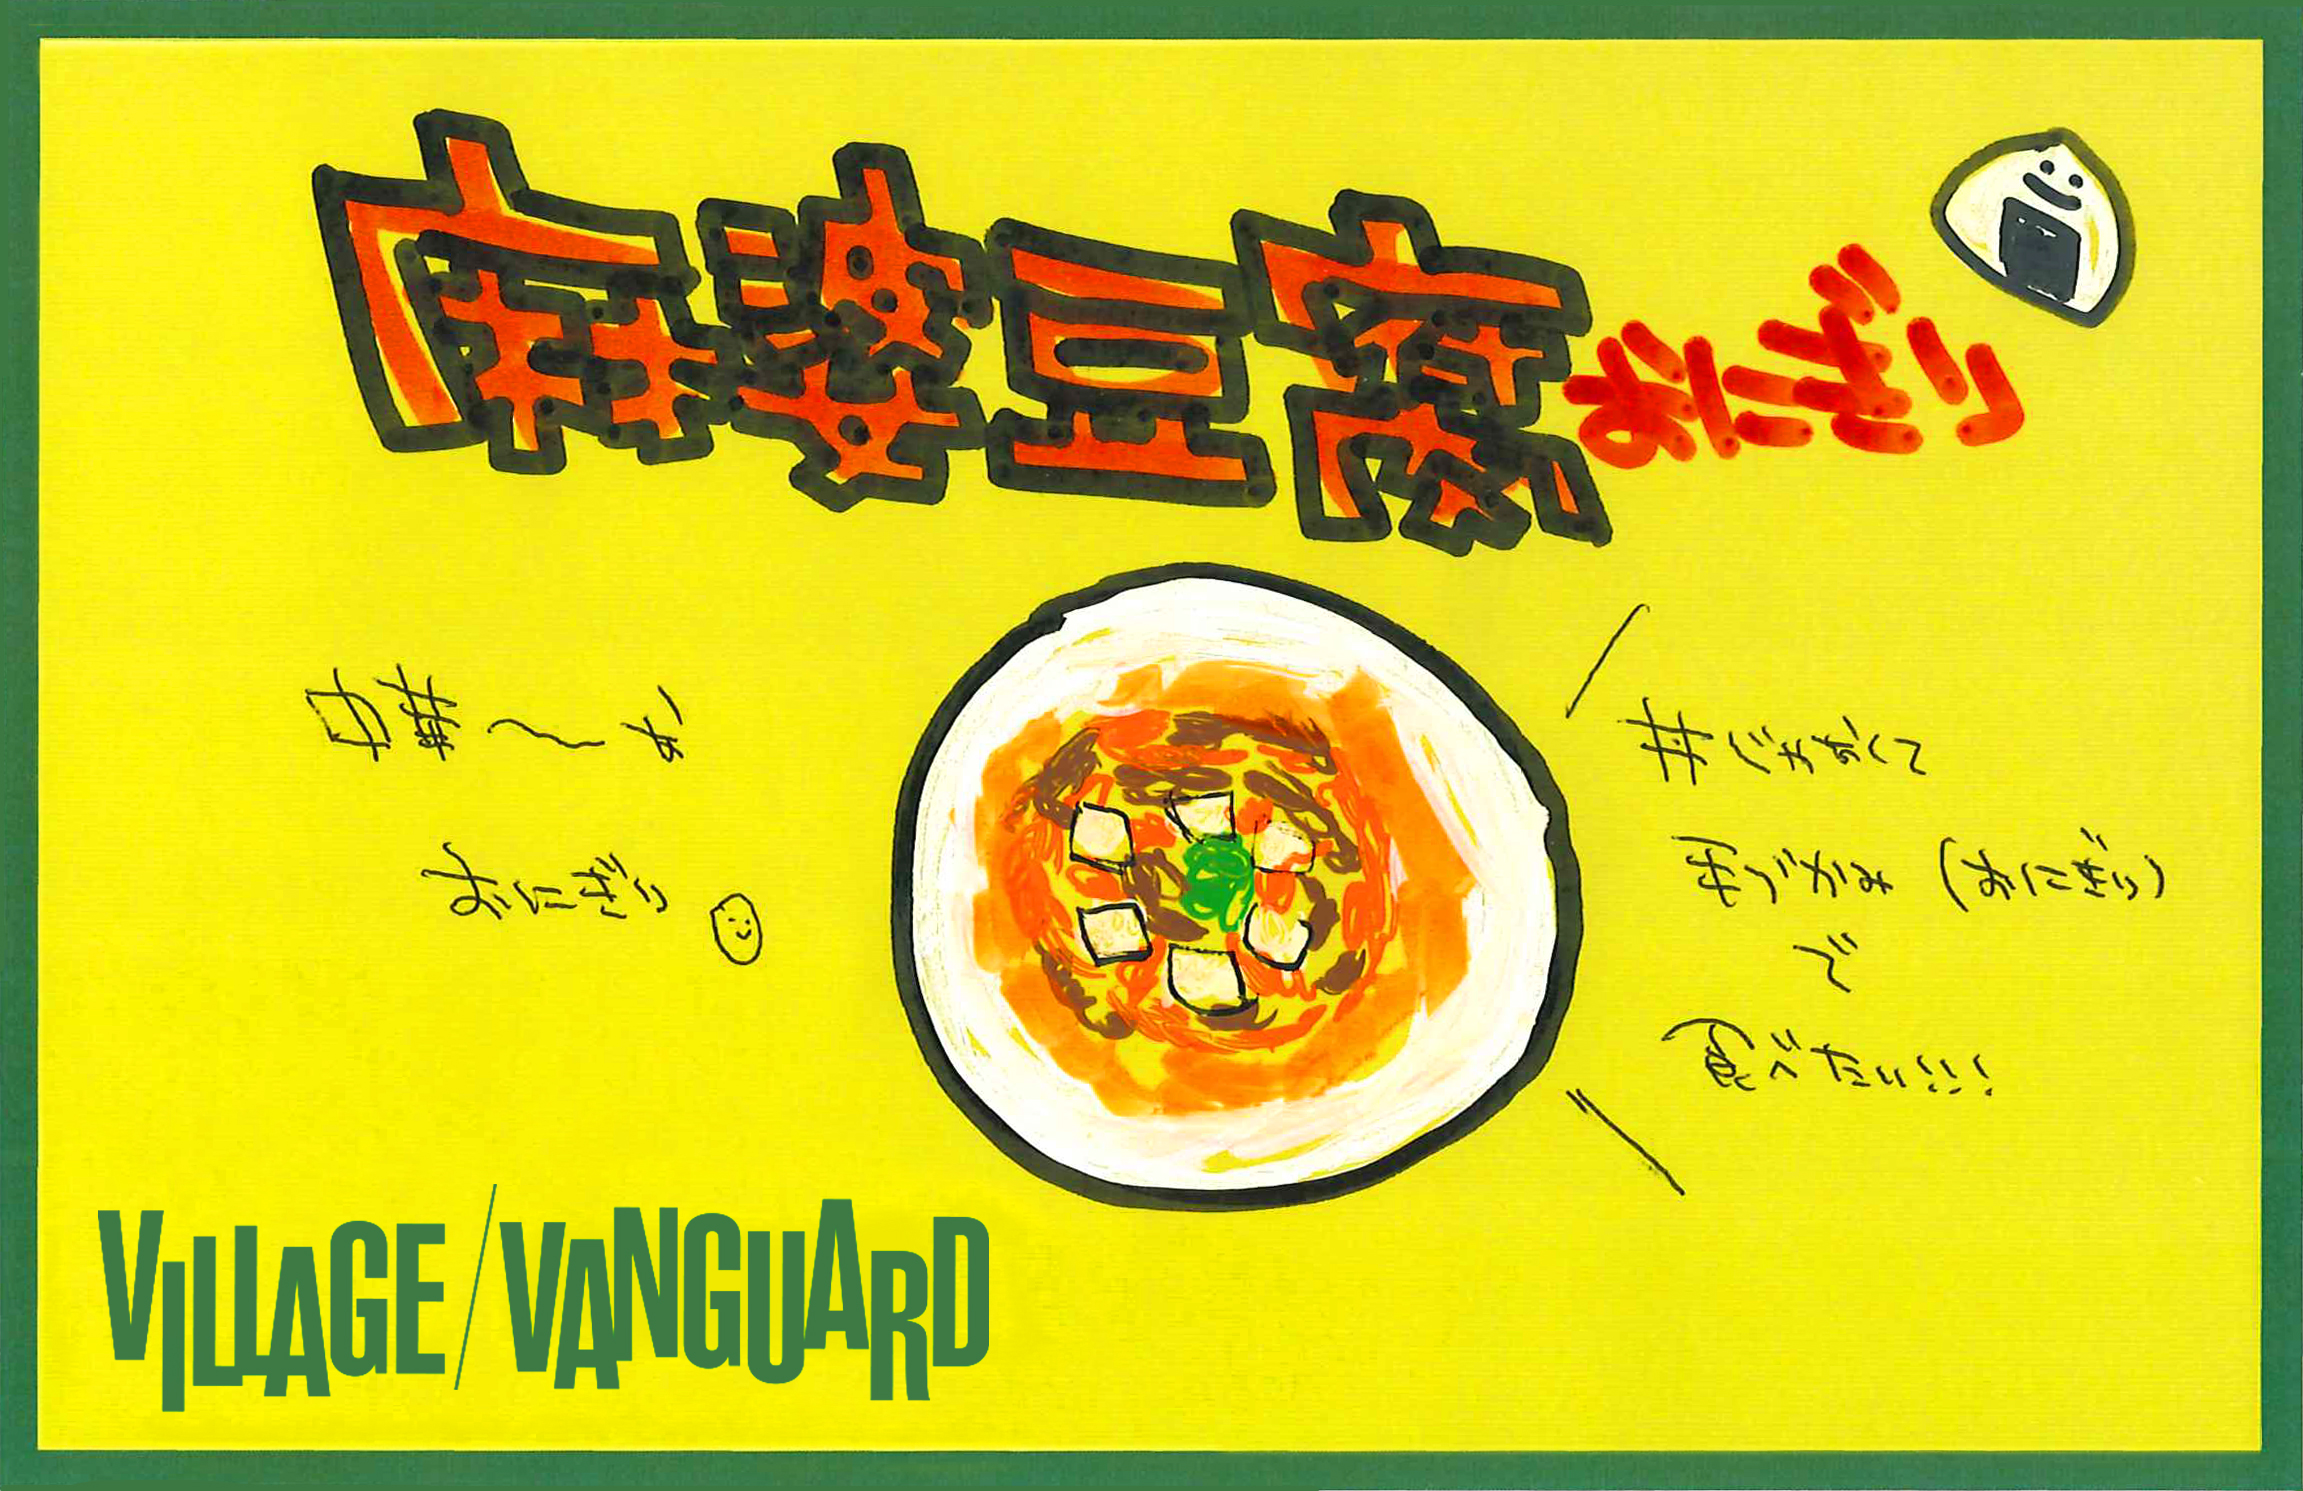 麻婆豆腐おにぎり
中華〜な
おにぎり
丼じゃなくて
手づかみ (おにぎり)
で
食べたい!!!
VILLAGE/VANGUARD